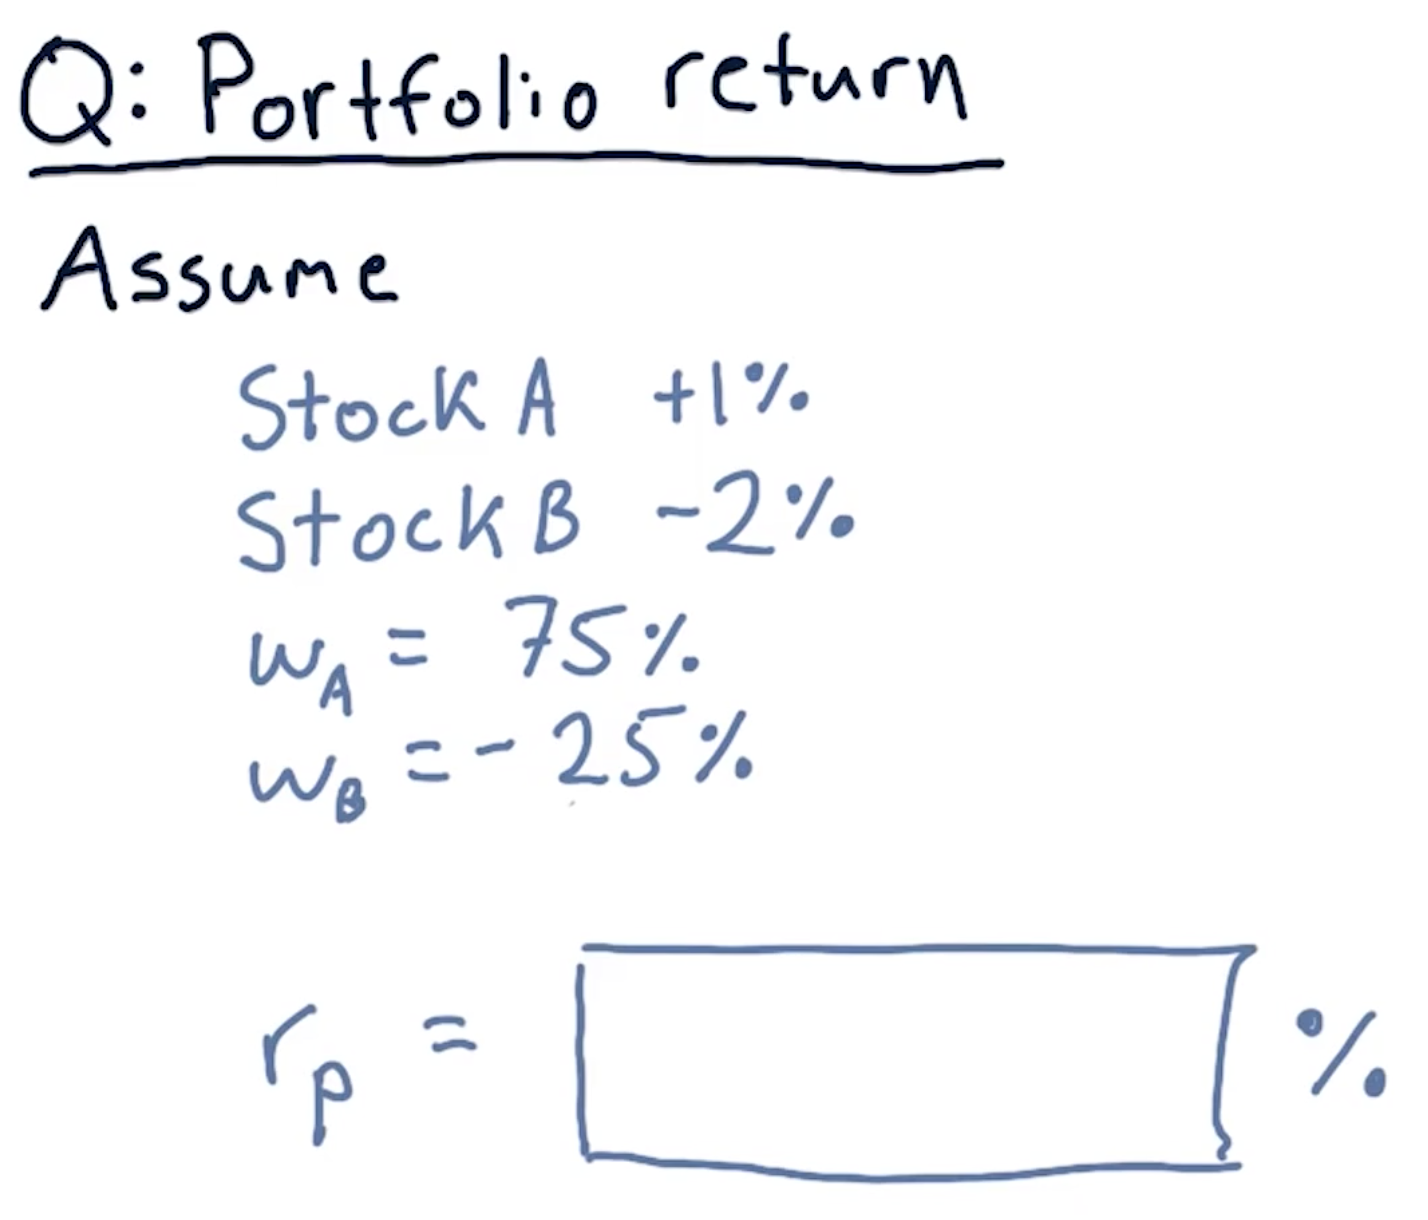 Q: Portfolio return
Assume
Stock A +1%
Stock B -2%
wA = 75%
wB = -25%
rp = %